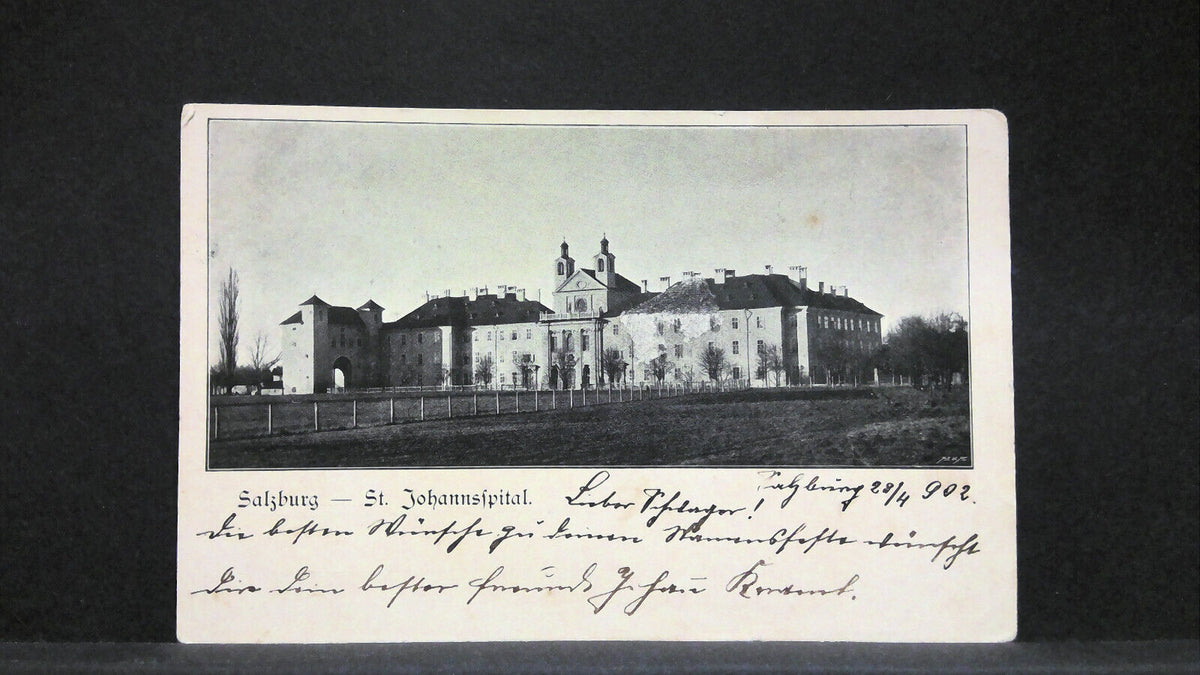 Salzburg 28/4 902.
Salzburg — St. Johannsspital. Lieber Schlager!
die besten Wünsche zu deinem Namensfeste wünscht
Dir dein bester Freund Johann